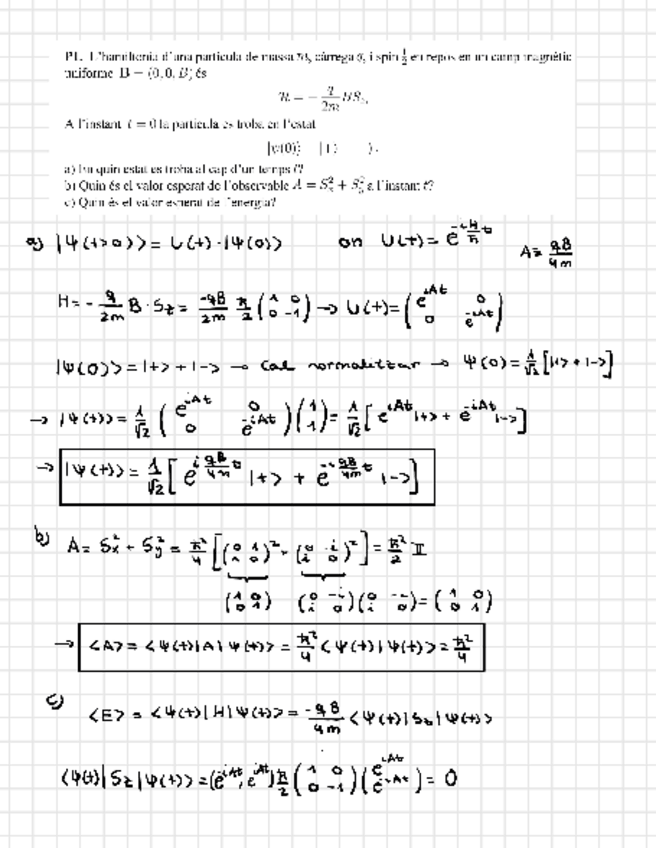 P1. L'hamiltonià d'una partícula de massa m, càrrega q, i spin 1/2 en repòs en un camp magnètic
uniforme B = (0, 0, B) és
H = - q/2m BS_z,
A l'instant t = 0 la partícula es troba en l'estat
|ψ(0)⟩
a) En quin estat es troba al cap d'un temps t?
b) Quin és el valor esperat de l'observable A = S_x^2 + S_y^2 a l'instant t?
c) Quin és el valor esperat de l'energia?
a) |Ψ(t>0)> = U(t)·|Ψ(0)> on U(t) = e^{-i H/ħ t} A = qB/4m
H = - q/2m B·S_z = -qB/2m ħ/2 (1 0 0 -1) → U(t) = (e^{iAt} 0 0 e^{-iAt})
|Ψ(0)> = |+> + |-> → Cal normalitzar → Ψ(0) = 1/√2 [|+> + |->]
→ |Ψ(t)> = 1/√2 (e^{iAt} 0 0 e^{-iAt}) (1 1) = 1/√2 [e^{iAt}|+> + e^{-iAt}|->]
→ |Ψ(t)> = 1/√2 [e^{i qB/4m t} |+> + e^{-i qB/4m t} |->]
b) A = S_x^2 + S_y^2 = ħ²/4 [(0 1 1 0)² + (0 -i i 0)²] = ħ²/2 𝕀
(1 0 0 1) (0 -i i 0)(0 -i i 0) = (1 0 0 1)
→ <A> = <Ψ(t)|A|Ψ(t)> = ħ²/4 <Ψ(t)|Ψ(t)> = ħ²/4
c) <E> = <Ψ(t)|H|Ψ(t)> = -qB/4m <Ψ(t)|S_z|Ψ(t)>
<Ψ(t)|S_z|Ψ(t)> = (e^{-iAt}, e^{iAt}) ħ/2 (1 0 0 -1) (e^{iAt} e^{-iAt}) = 0